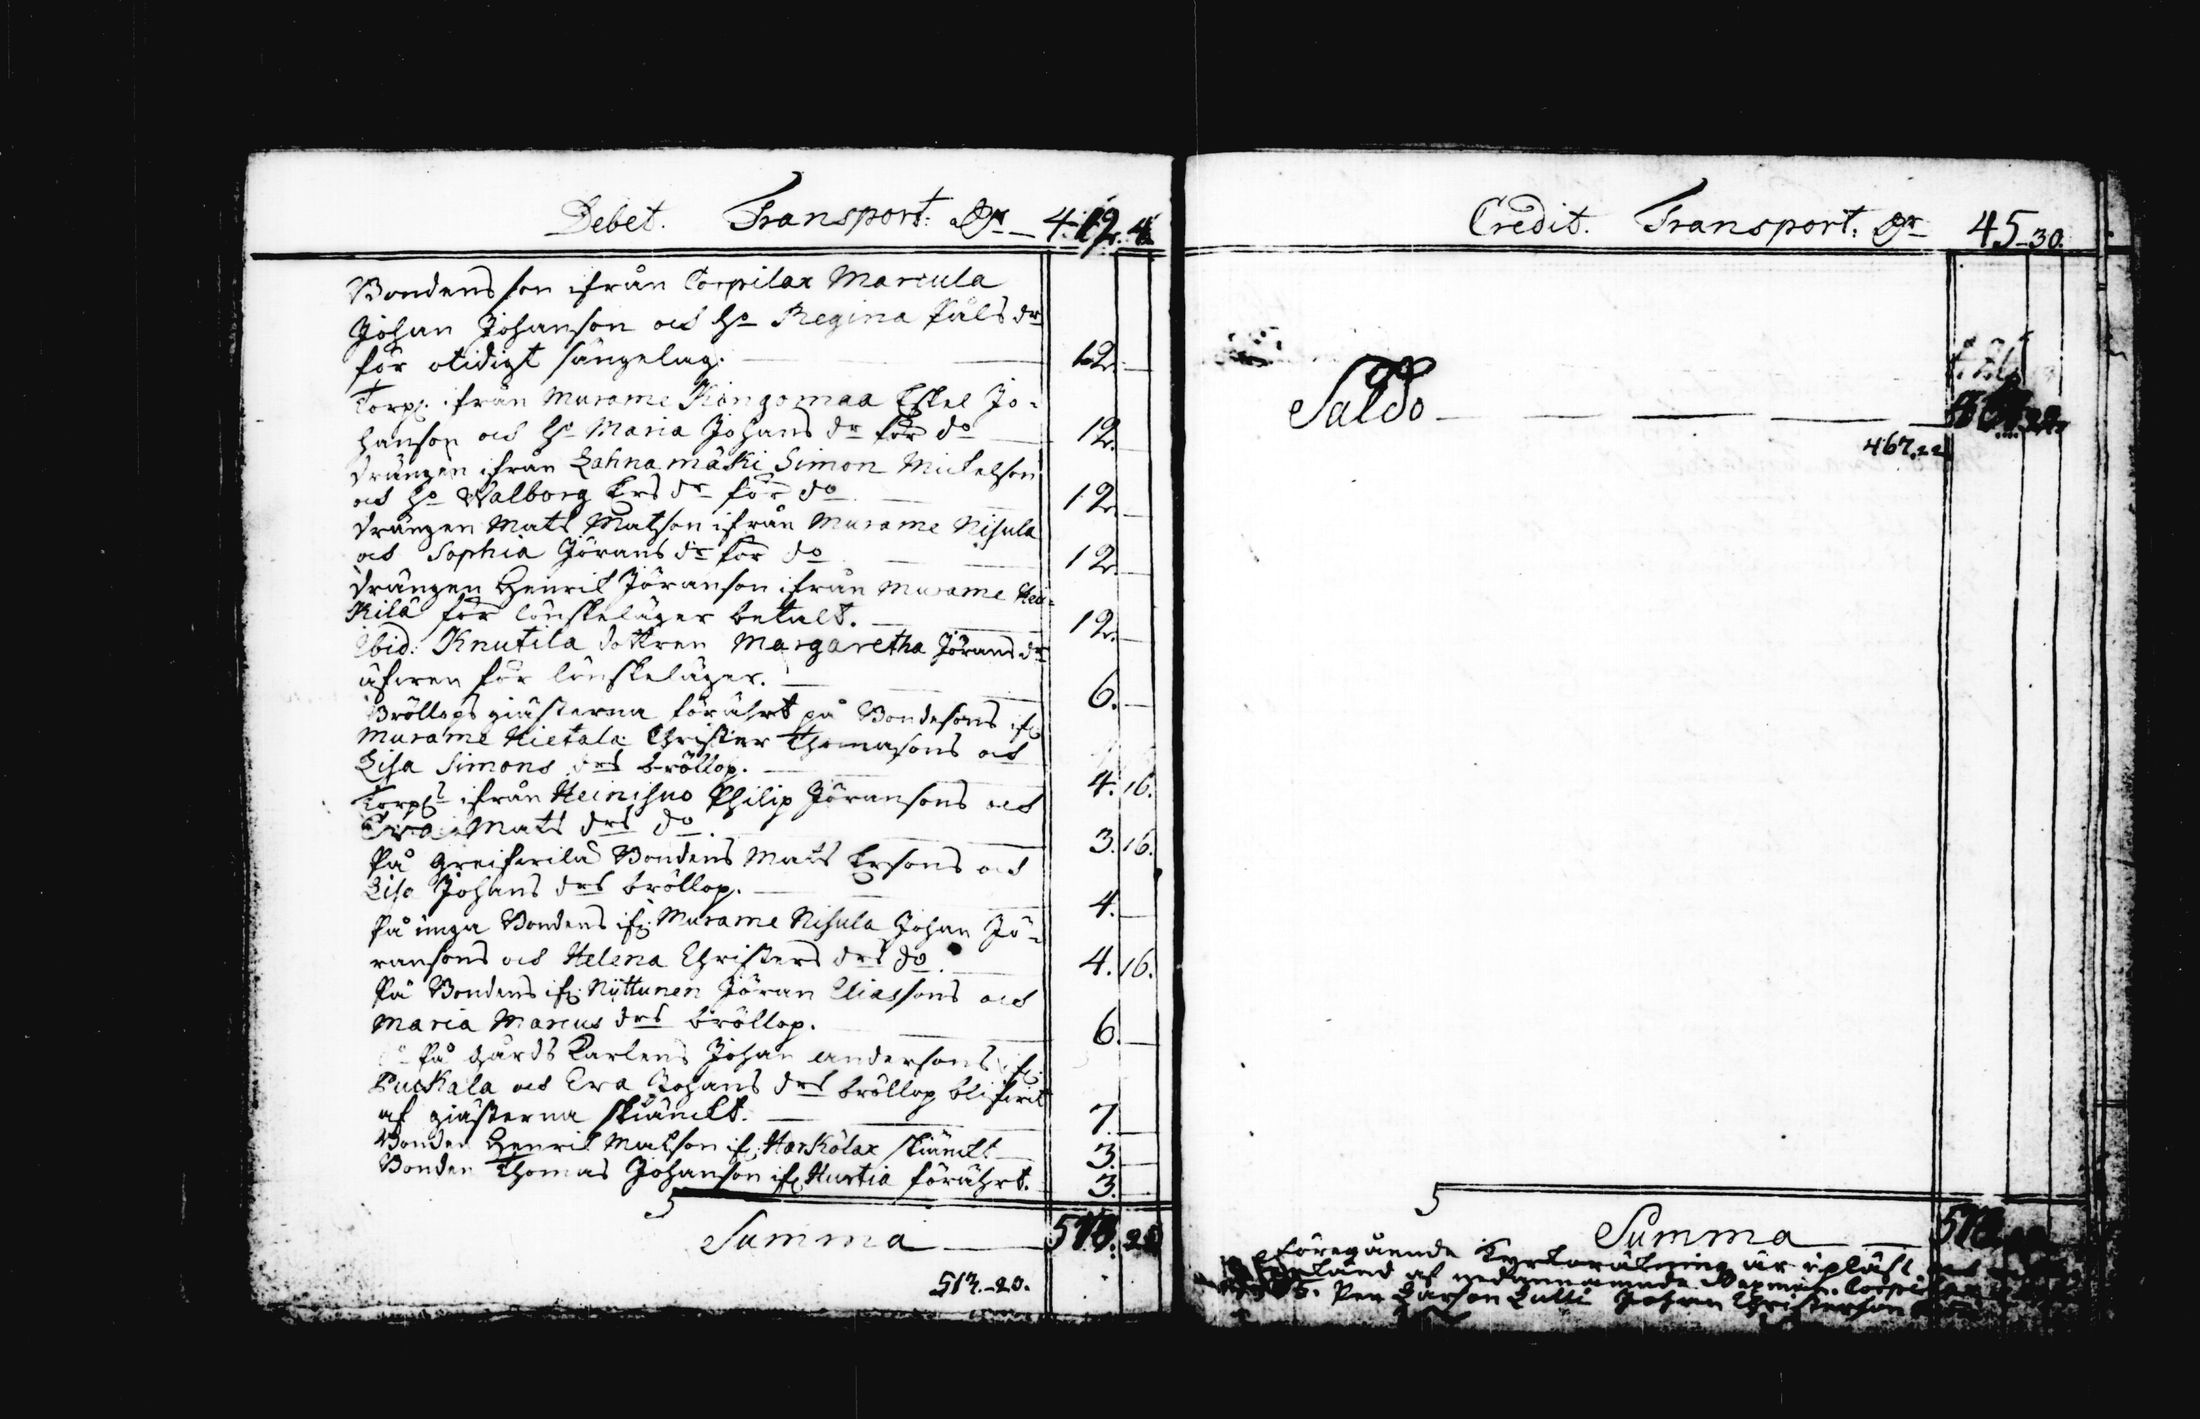 Debet. Transport: Dr — 412. 4.
Bondens son ifrån Torpilax Marcula
Johan Johanson och Ho Regina Påls dr
för otidigt sängelag. — 12. —
Torp. ifrån Murame Kangomaa Eskel Jo-
hanson och Ho Maria Johans dr för do — 12. —
Drängen ifrån Lahnamäki Simon Mickelson
och Ho Walborg Ers dr för do — 12. —
Drängen Mats Matson ifrån Murame Nisula
och Sophia Jörans dr för do — 12. —
Drängen Henrik Jöranson ifrån Murame Hei-
kilä för lönskeläger betalt. — 12. —
Ibid: Knutila dottren Margaretha Jörans dr
äfwen för lönskeläger. — 6. —
Bröllops giästerna förährt på Bondesons if:
Murame Hietala Christer Thomasons och
Lisa Simons drs bröllop. — 4. 16.
Torp:s ifrån Heinisuo Philip Jöransons och
Eva Mats drs do. — 3. 16.
På Bondens Mats Ersons och
Lisa Johans drs bröllop. — 4. —
På unga Bondens if: Murame Nisula Johan Jö-
ransons och Helena Christers drs do. — 4. 16.
På Bondens if: Nyttunen Jöran Eliassons och
Maria Marcus drs bröllop. — 6. —
På gårds Karlens Johan Andersons if:
Puckala och Eva Johans drs bröllop blifwit
af giästerna skiänckt. — 7. —
Bonden Henrik Matson if: Harkölax skiänckt — 3. —
Bonden Thomas Johanson if: Hurtia förährt. 3. —
Summa — 513. 20
513.-20.
Credit. Transport: Dr — 45-30.
Saldo —
467.22
Summa —
Föregående Kyrkoräkning är upläst
af nedannämnde
Per Larson Lulli Johan Christerson